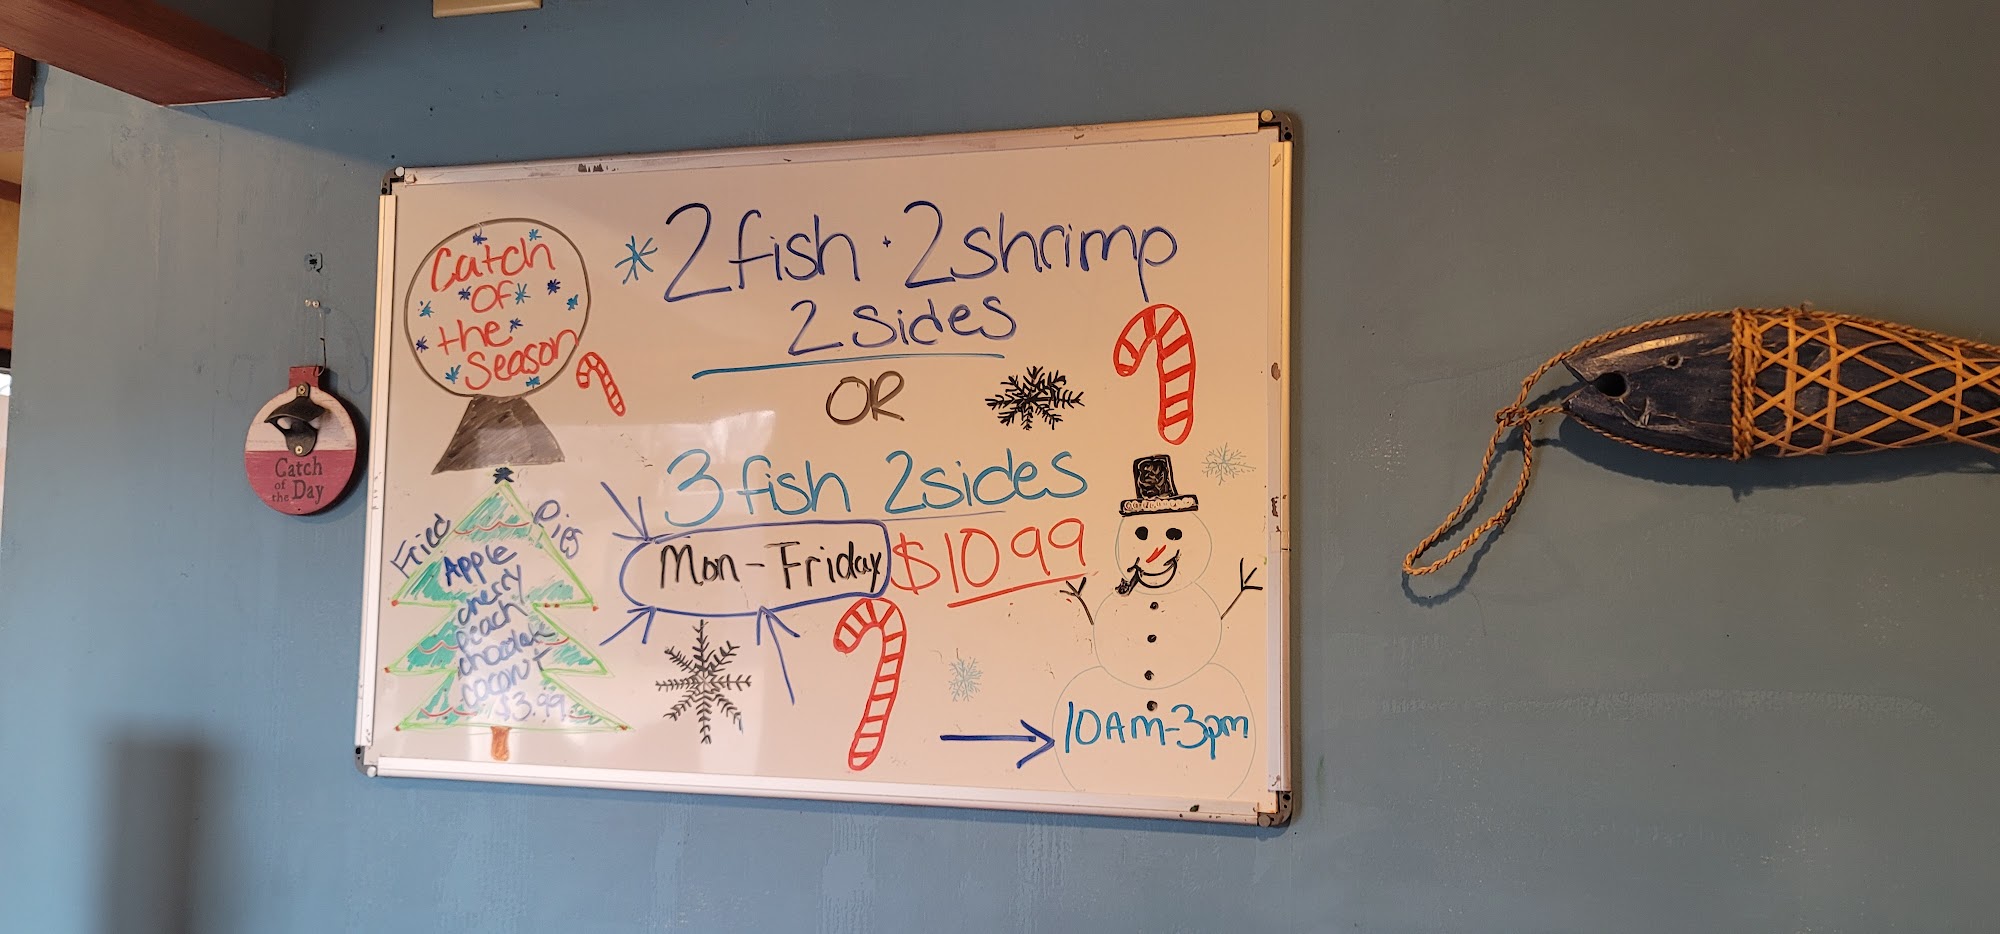 Catch
OF
the
Season
2 fish · 2 shrimp
2 sides
OR
3 fish 2 sides
Mon - Friday $10 99
10AM - 3pm
Fried Pies
Apple
cherry
peach
chocolate
coconut
$3.99
Catch
of the Day